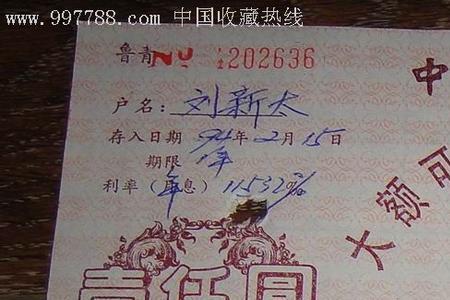 www.997788.com 中国收藏热线
鲁青 No 202636
中
户名：刘新太
存入日期 94年2月15日
期限 1年
利率（年息）11.532%
大额可
壹仟圆